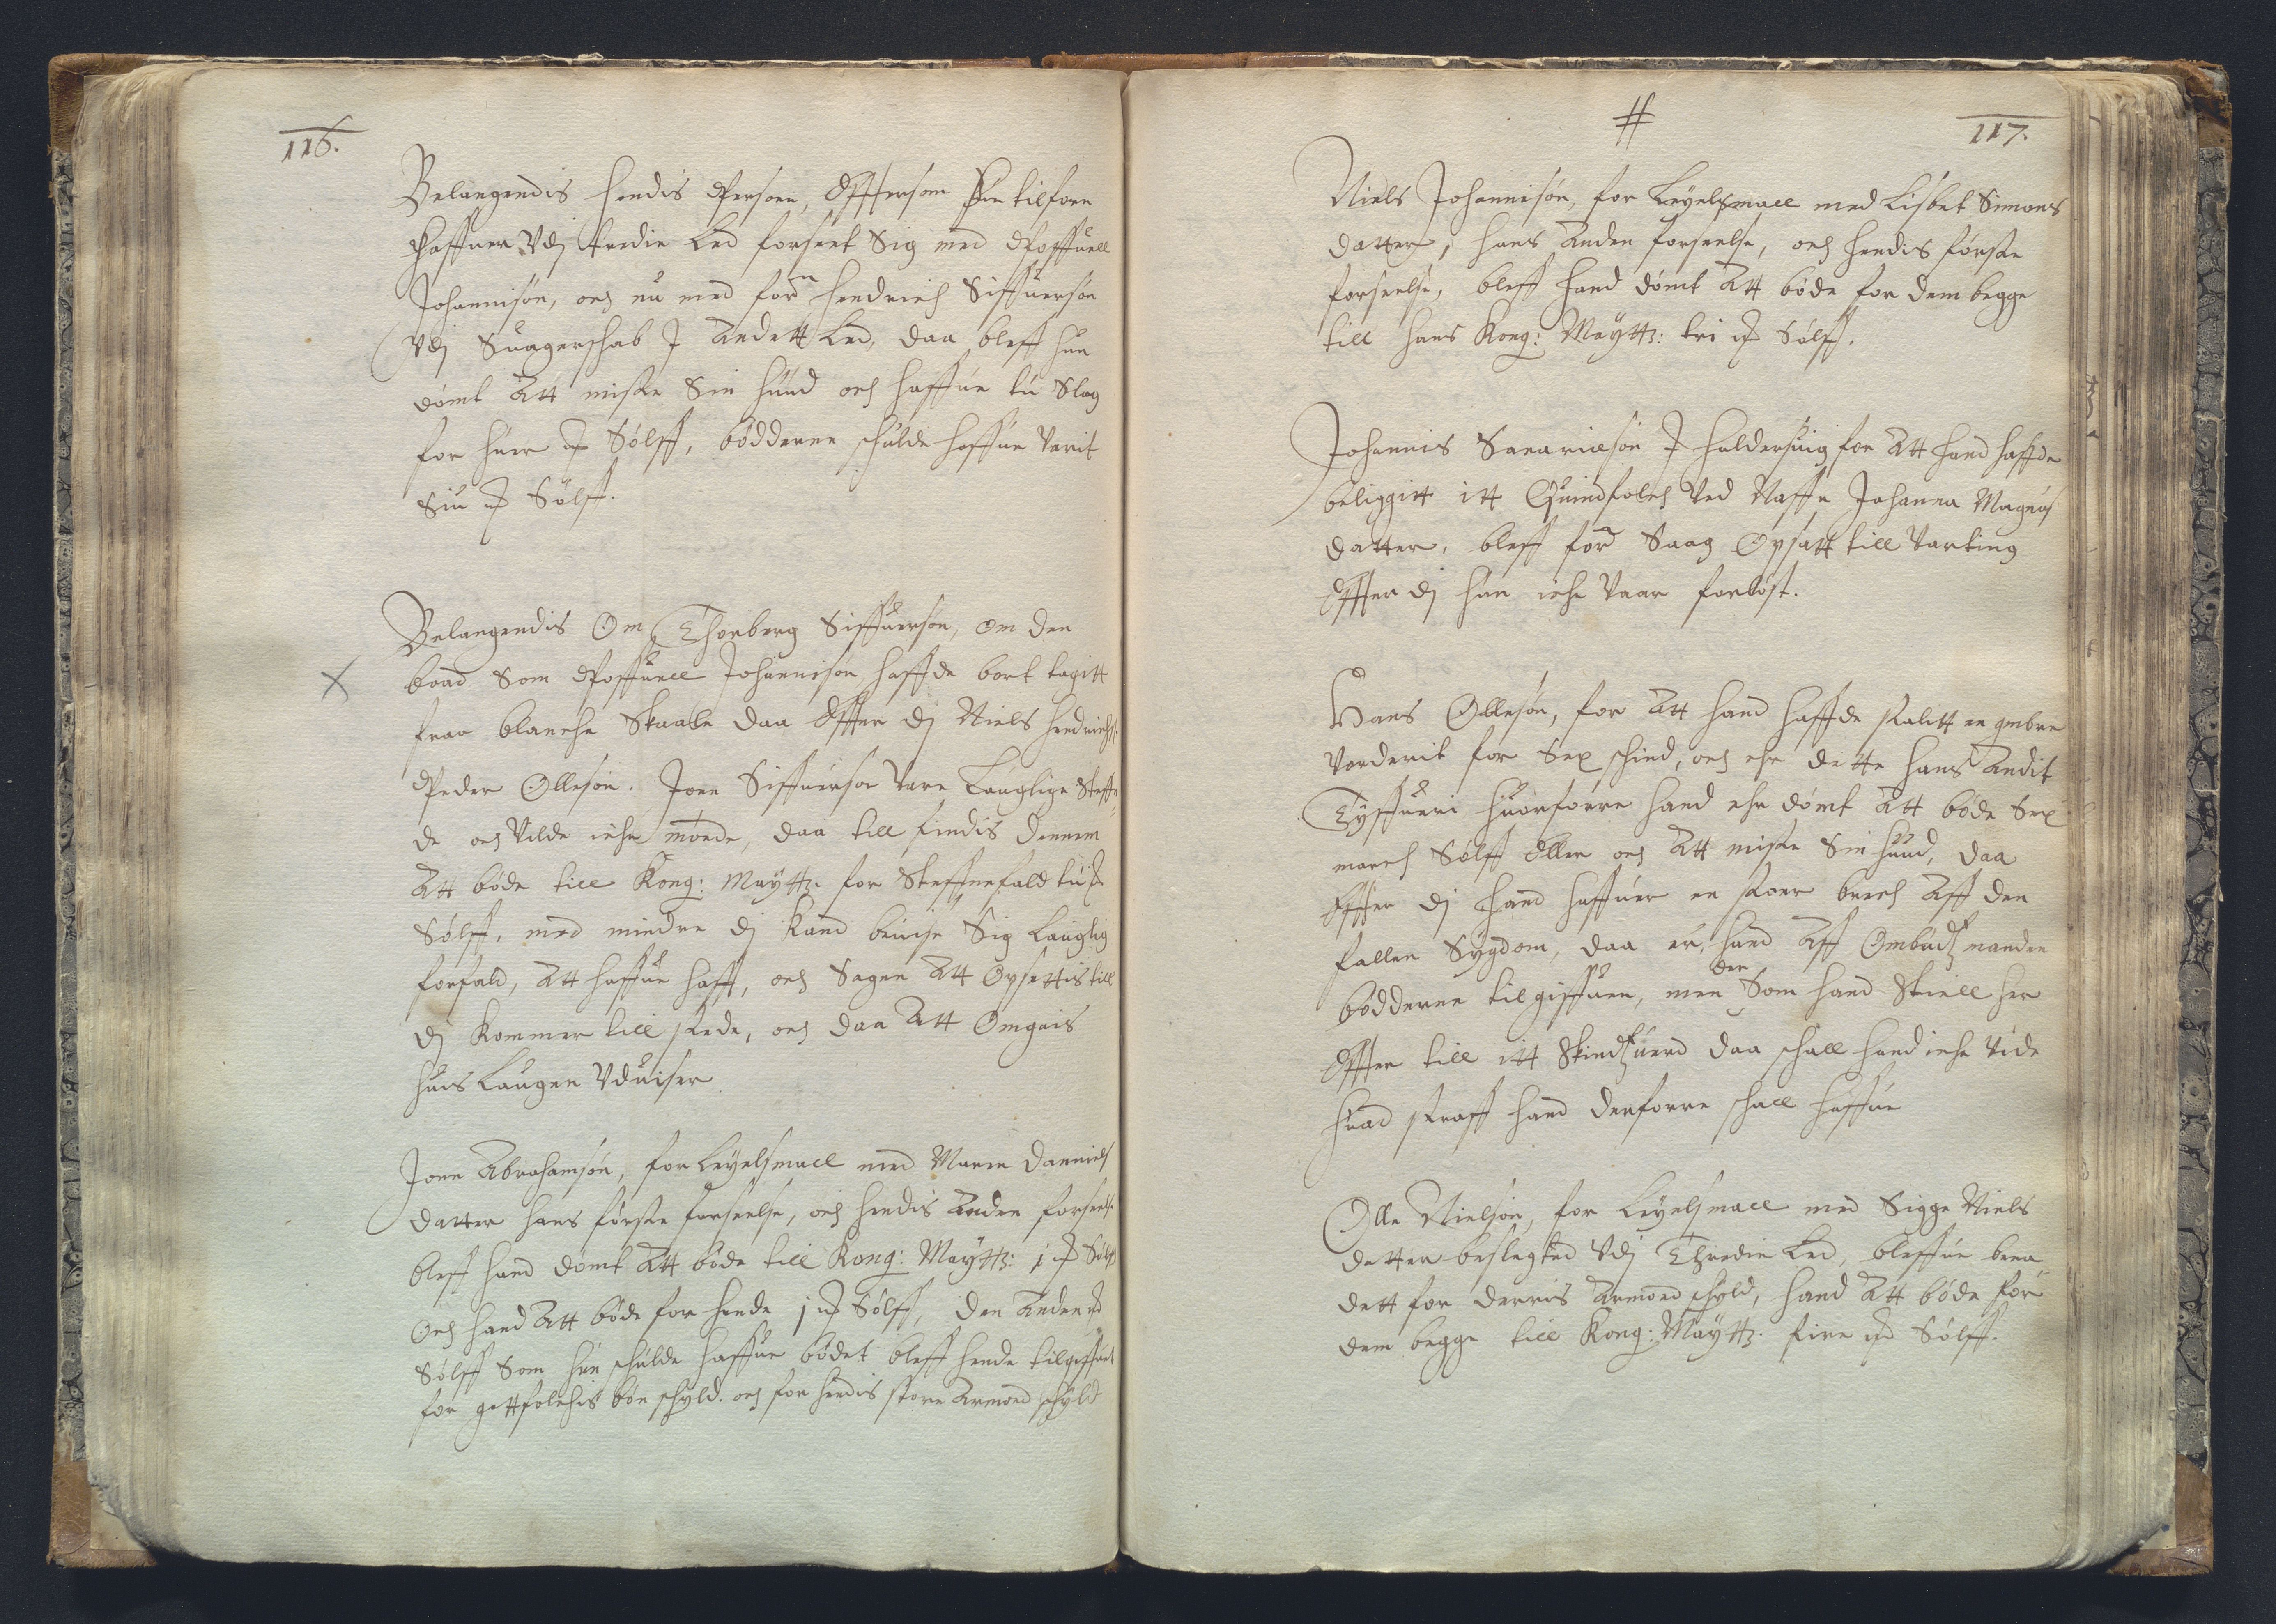 116.
Belangendis hendis Persoen, Efftersom hun tilforn
haffuer Vdj tredie Led forseet Sig med Poffuell
Johannisøn, och nu med forn hendrich Siffuersøn
Vdj Suagerschab J Andett Led, daa bleff hun
dømt Att miste Sin huud och haffue tu Slag
for huer mk Sølff, bødderne schulde haffue Varit
Siu mk Sølff.
Belangendis Om Thorberg Siffuersøn, om den
baad Som Poffuell Johannisøn haffde bort tagitt
fraa blanche Skaale daa Effter dj Niels hendrichs:
Peder Ollesøn. Joen Siffuersøn Vare Lauglige Steffn
de och Vilde iche møede, daa till findis dennem
Att bøde till Kong: Maytz. for Steffnefald tu mk
Sølff, med mindre dj Kand beuise Sig Lauglig
forfald, Att haffue hafft, och Sagen Att Opsettis till
dj Kommer till stede, och daa Att Omgais
huis Laugen Vduiser
Joen Abrahamsøn, for Leyelsmall med Maren Danniels
datter hans første forseelse, och hendis Anden forseelse
bleff hand dømt Att bøde till Kong: Maytz: j mk Sølff
Och hand Att bøde for hende j mk Sølff, den Anden mk
Sølff Som hun schulde haffue bødet bleff hende tilgiffuet
for gottfolchis bøn schyld. och for hendis store Armoed schyld
117.
Niels Johannisøn, for Leyelsmall med Lisbet Simons
datter, hans Anden forseelse, och hendis første
forseelse, bleff hand dømt Att bøde for dem begge
till hans Kong: Maytz: tri mk Sølff.
Johannis Sanarielsøn J haldersuig for Att hand haffde
beliggitt itt Quindfolch Ved Naffn Johanna Magnus
datter, bleff forn Saag Opsatt till Varting
Effter dj hun iche Vaar forløst.
Hans Ollesøn, for Att hand haffde stalitt en gmber
Vorderit for Sex schind, och ehr dette hans Andit
Tyffueri huorforre hand ehr dømt Att bøde Sex
march Sølff Eller och Att miste Sin huud, daa
Effter dj hand haffuer en stoer brech Aff den
fallen Sygdom, daa er hand Aff Ombudzmanden
bødderne tilgiffuen, men der Som hand Stiell her
Effter till itt Skindzuerd daa schall hand iche Vide
huad straff hand derforre schall haffue
Olle Nielsøn, for Leyelsmall med Sigge Niels
datter beslegted Vdj Thredie Led, bleffue bena
dett for derris Armoed schyld, hand Att bøde for
dem begge till Kong: Maytz. fire mk Sølff.